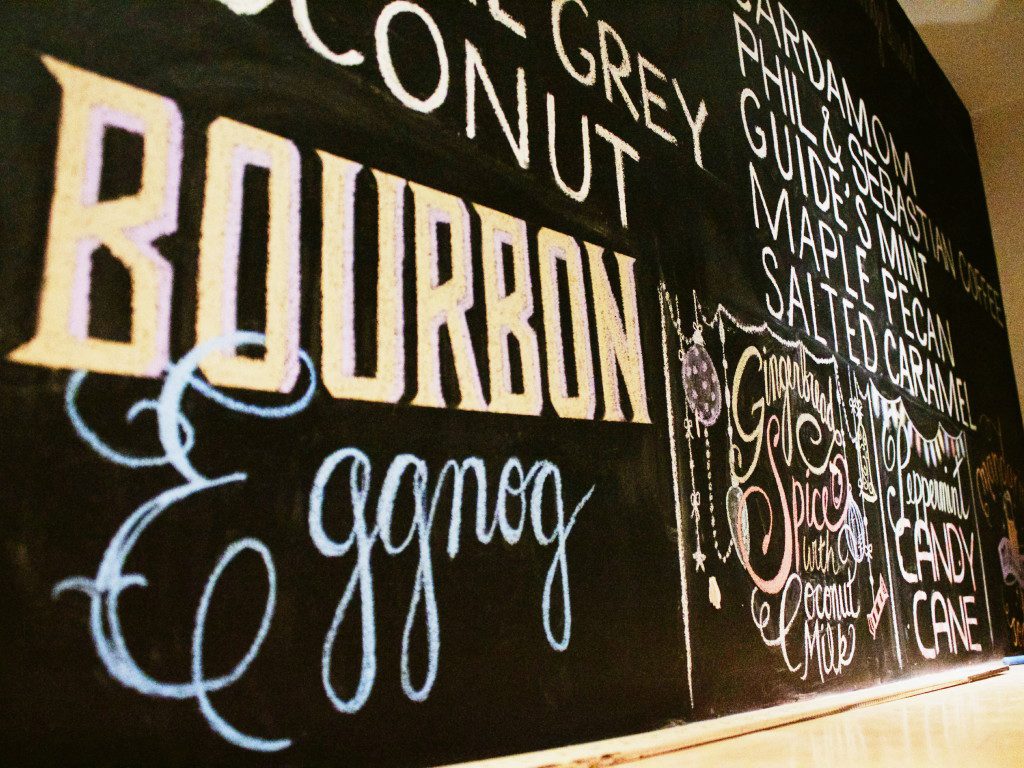 GREY
CONUT
BOURBON
Eggnog
CARDAMOM
PHIL & SEBASTIAN COFFEE
GUIDE'S MINT
MAPLE PECAN
SALTED CARAMEL
Gingerbread
Spice
with
Coconut
Milk
Peppermint
CANDY
CANE